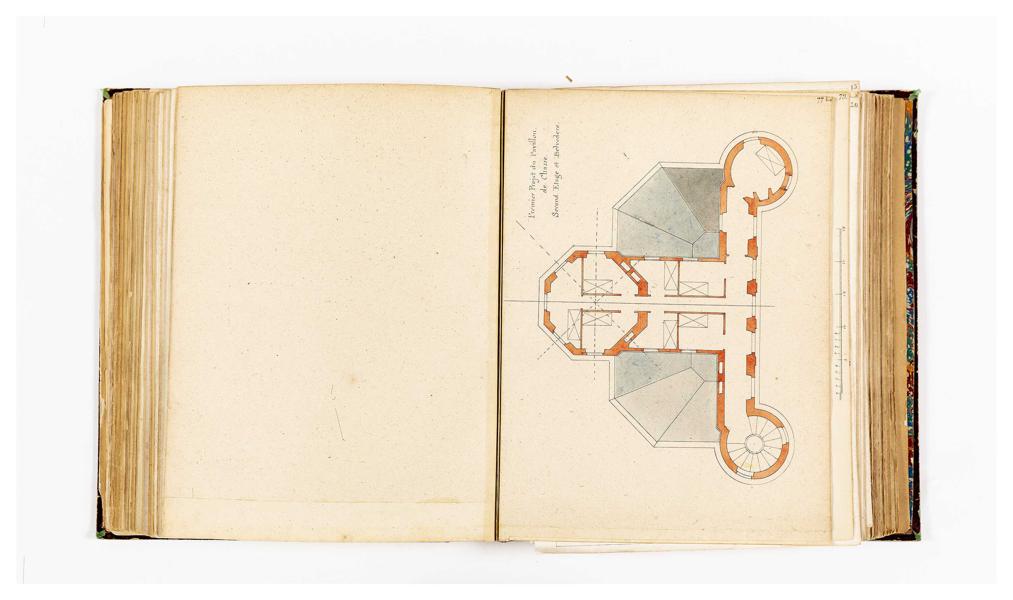 Premier Projet du Pavillon.
de Chasse.
Second Etage et Belvedere.